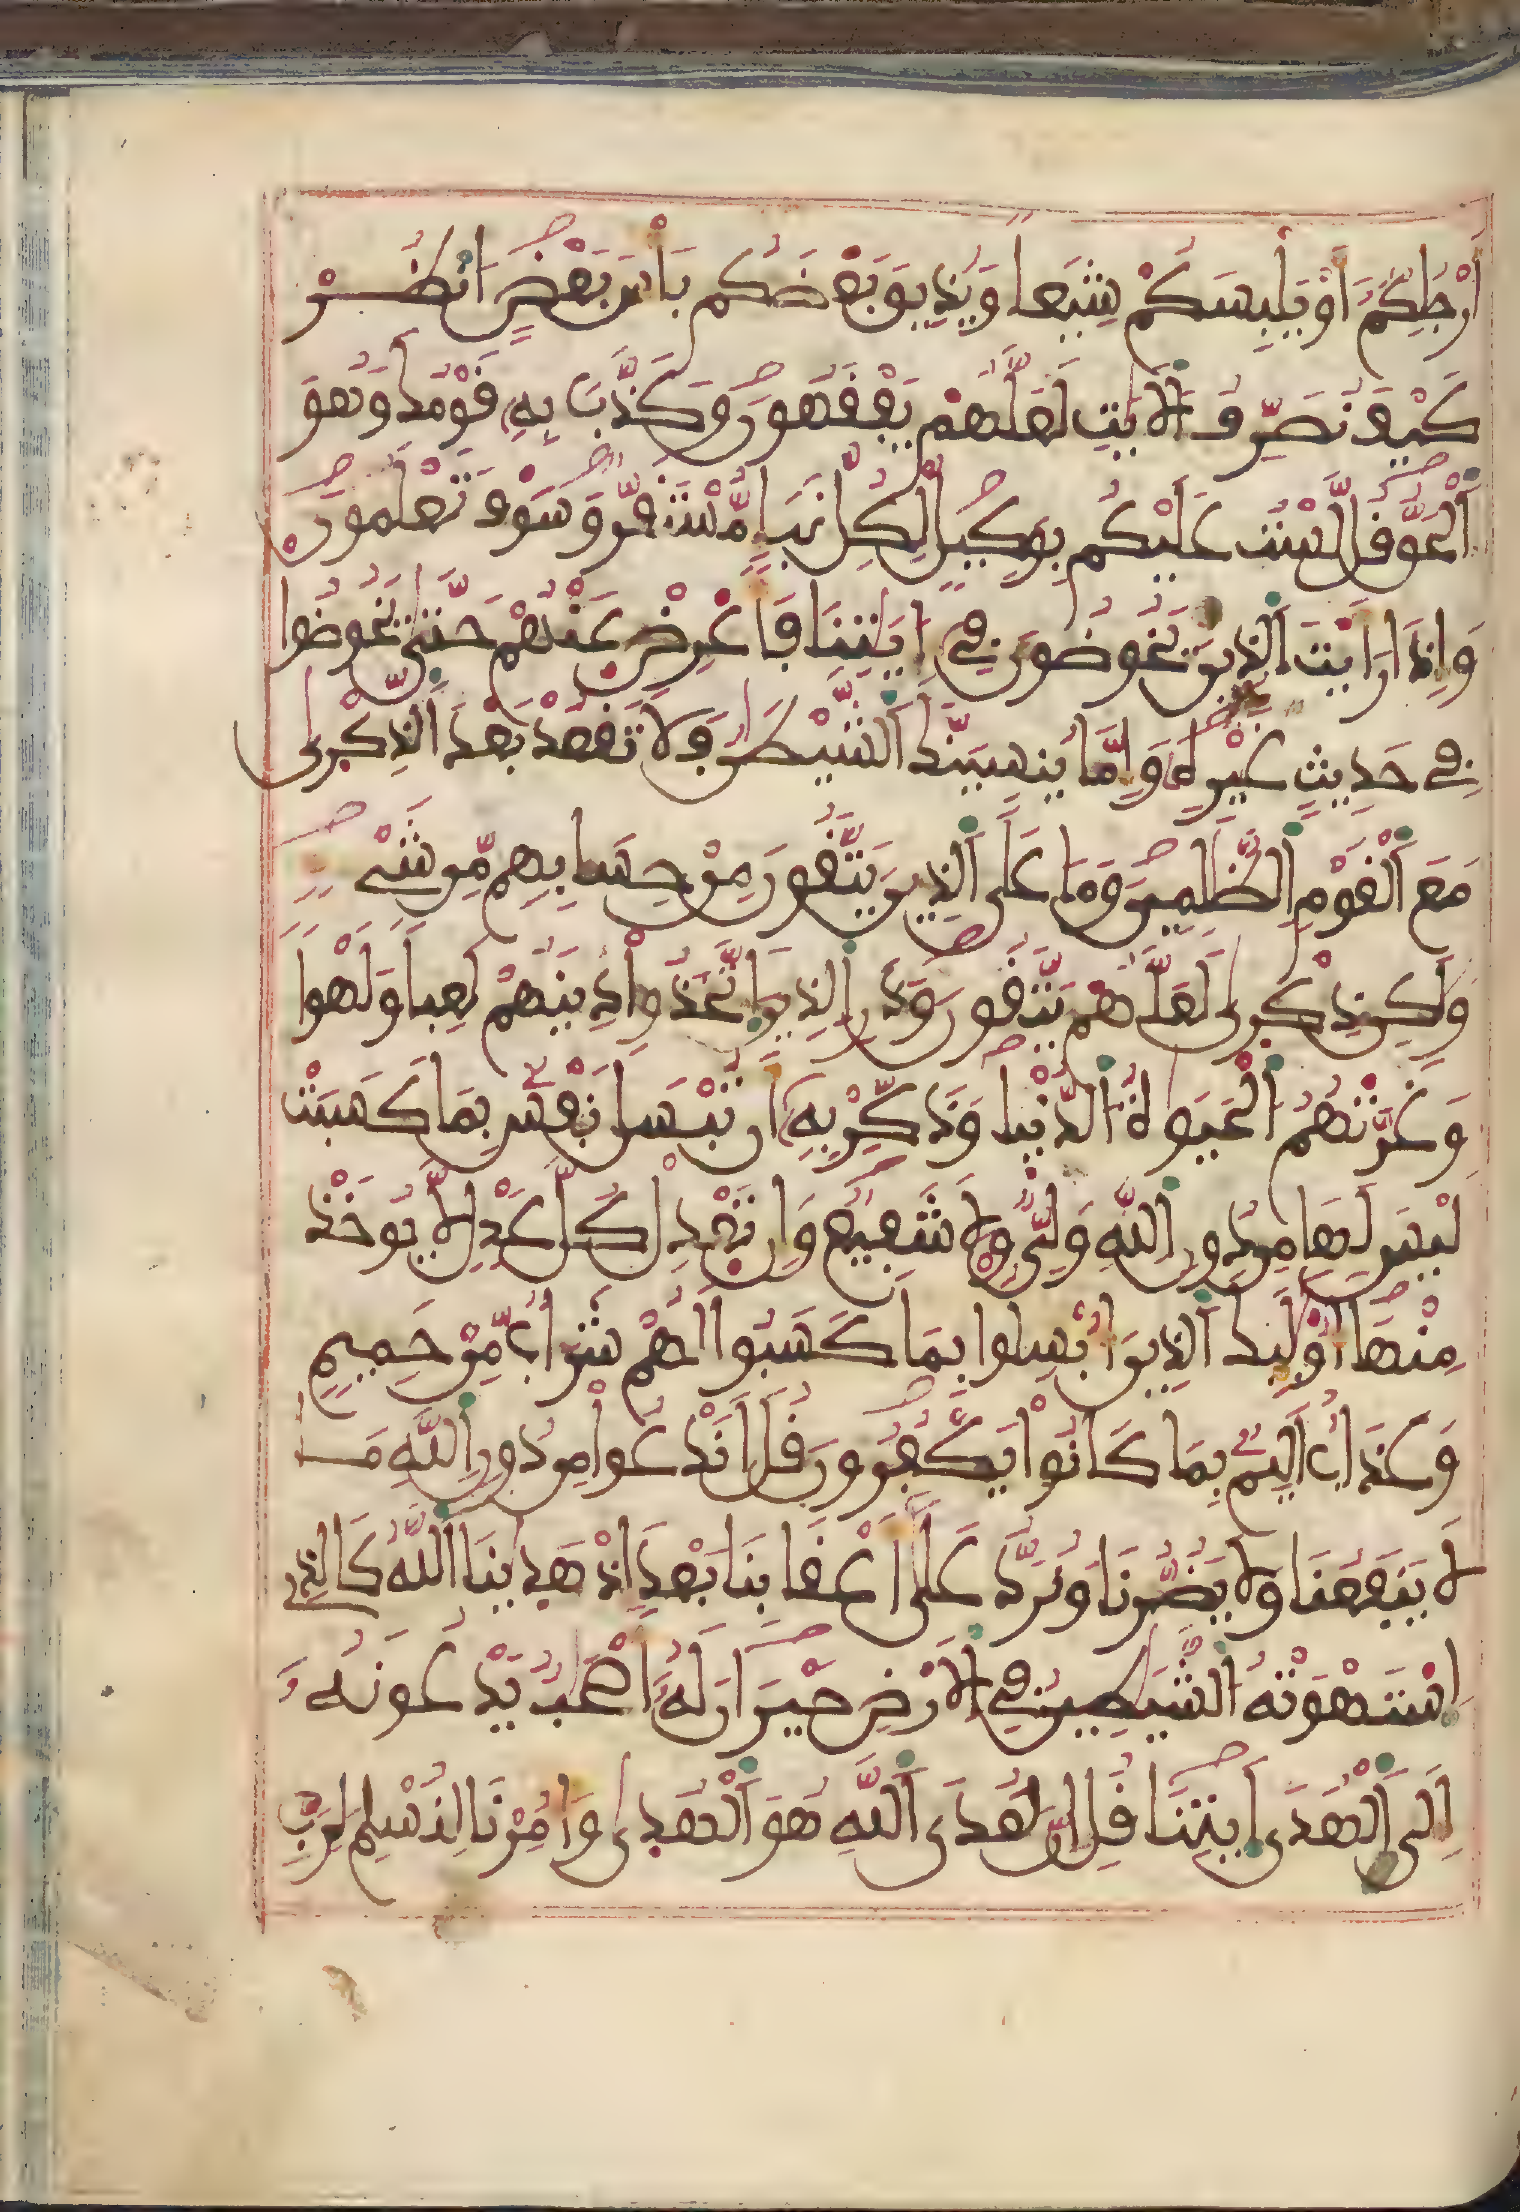 أَرْجُلِكُمُۥٓ أَوْ يَلْبِسَكُمْ شِيَعاً وَيُذِيقَ بَعْضَكُم بَأْسَ بَعْضٍ اُنظُرْ
كَيْفَ نُصَرِّفُ اُ۬لَايَٰتِ لَعَلَّهُمْ يَفْقَهُونَ وَكَذَّبَ بِهِۦ قَوْمُكَ وَهُوَ
اَ۬لْحَقُّ قُل لَّسْتُ عَلَيْكُم بِوَكِيلٍ لِّكُلِّ نَبَإٍ مُّسْتَقَرٌّ وَسَوْفَ تَعْلَمُونَ
وَإِذَا رَأَيْتَ اَ۬لذِينَ يَخُوضُونَ فِےٓ ءَايَٰتِنَا فَأَعْرِضْ عَنْهُمْ حَتَّىٰ يَخُوضُوا
فِے حَدِيثٍ غَيْرِهِۦ وَإِمَّا يُنسِيَنَّكَ اَ۬لشَّيْطَٰنُ فَلَا تَقْعُدْ بَعْدَ اَ۬لذِّكْرَىٰ
مَعَ اَ۬لْقَوْمِ اِ۬لظَّٰلِمِينَ وَمَا عَلَى اَ۬لذِينَ يَتَّقُونَ مِنْ حِسَابِهِم مِّن شَےْءٍ
وَلَٰكِن ذِكْرَىٰ لَعَلَّهُمْ يَتَّقُونَ وَذَرِ اِ۬لذِينَ اَ۪تَّخَذُوا دِينَهُمْ لَعِباً وَلَهْواً
وَغَرَّتْهُمُ اُ۬لْحَيَوٰةُ اُ۬لدُّنْيَا وَذَكِّرْ بِهِۦٓ أَن تُبْسَلَ نَفْسٌ بِمَا كَسَبَتْ
لَيْسَ لَهَا مِن دُونِ اِ۬للَّهِ وَلِيٌّ وَلَا شَفِيعٌ وَإِن تَعْدِلْ كُلَّ عَدْلٍ لَّا يُوخَذْ
مِنْهَا أُوْلَٰٓئِكَ اَ۬لذِينَ أُبْسِلُوا بِمَا كَسَبُوا لَهُمْ شَرَابٌ مِّنْ حَمِيمٍ
وَعَذَابٌ أَلِيمٌ بِمَا كَانُوا يَكْفُرُونَ قُلَ اَنَدْعُوا مِن دُونِ اِ۬للَّهِ مَا
لَا يَنفَعُنَا وَلَا يَضُرُّنَا وَنُرَدُّ عَلَىٰٓ أَعْقَابِنَا بَعْدَ إِذْ هَدَيٰنَا اَ۬للَّهُ كَالذِے
اِ۪سْتَهْوَتْهُ اُ۬لشَّيَٰطِينُ فِے اِ۬لَارْضِ حَيْرَانَ لَهُۥٓ أَصْحَٰبٌ يَدْعُونَهُۥٓ
إِلَى اَ۬لْهُدَى اَ۪يتِنَا قُلِ اِنَّ هُدَى اَ۬للَّهِ هُوَ اَ۬لْهُدَىٰ وَأُمِرْنَا لِنُسْلِمَ لِرَبِّ